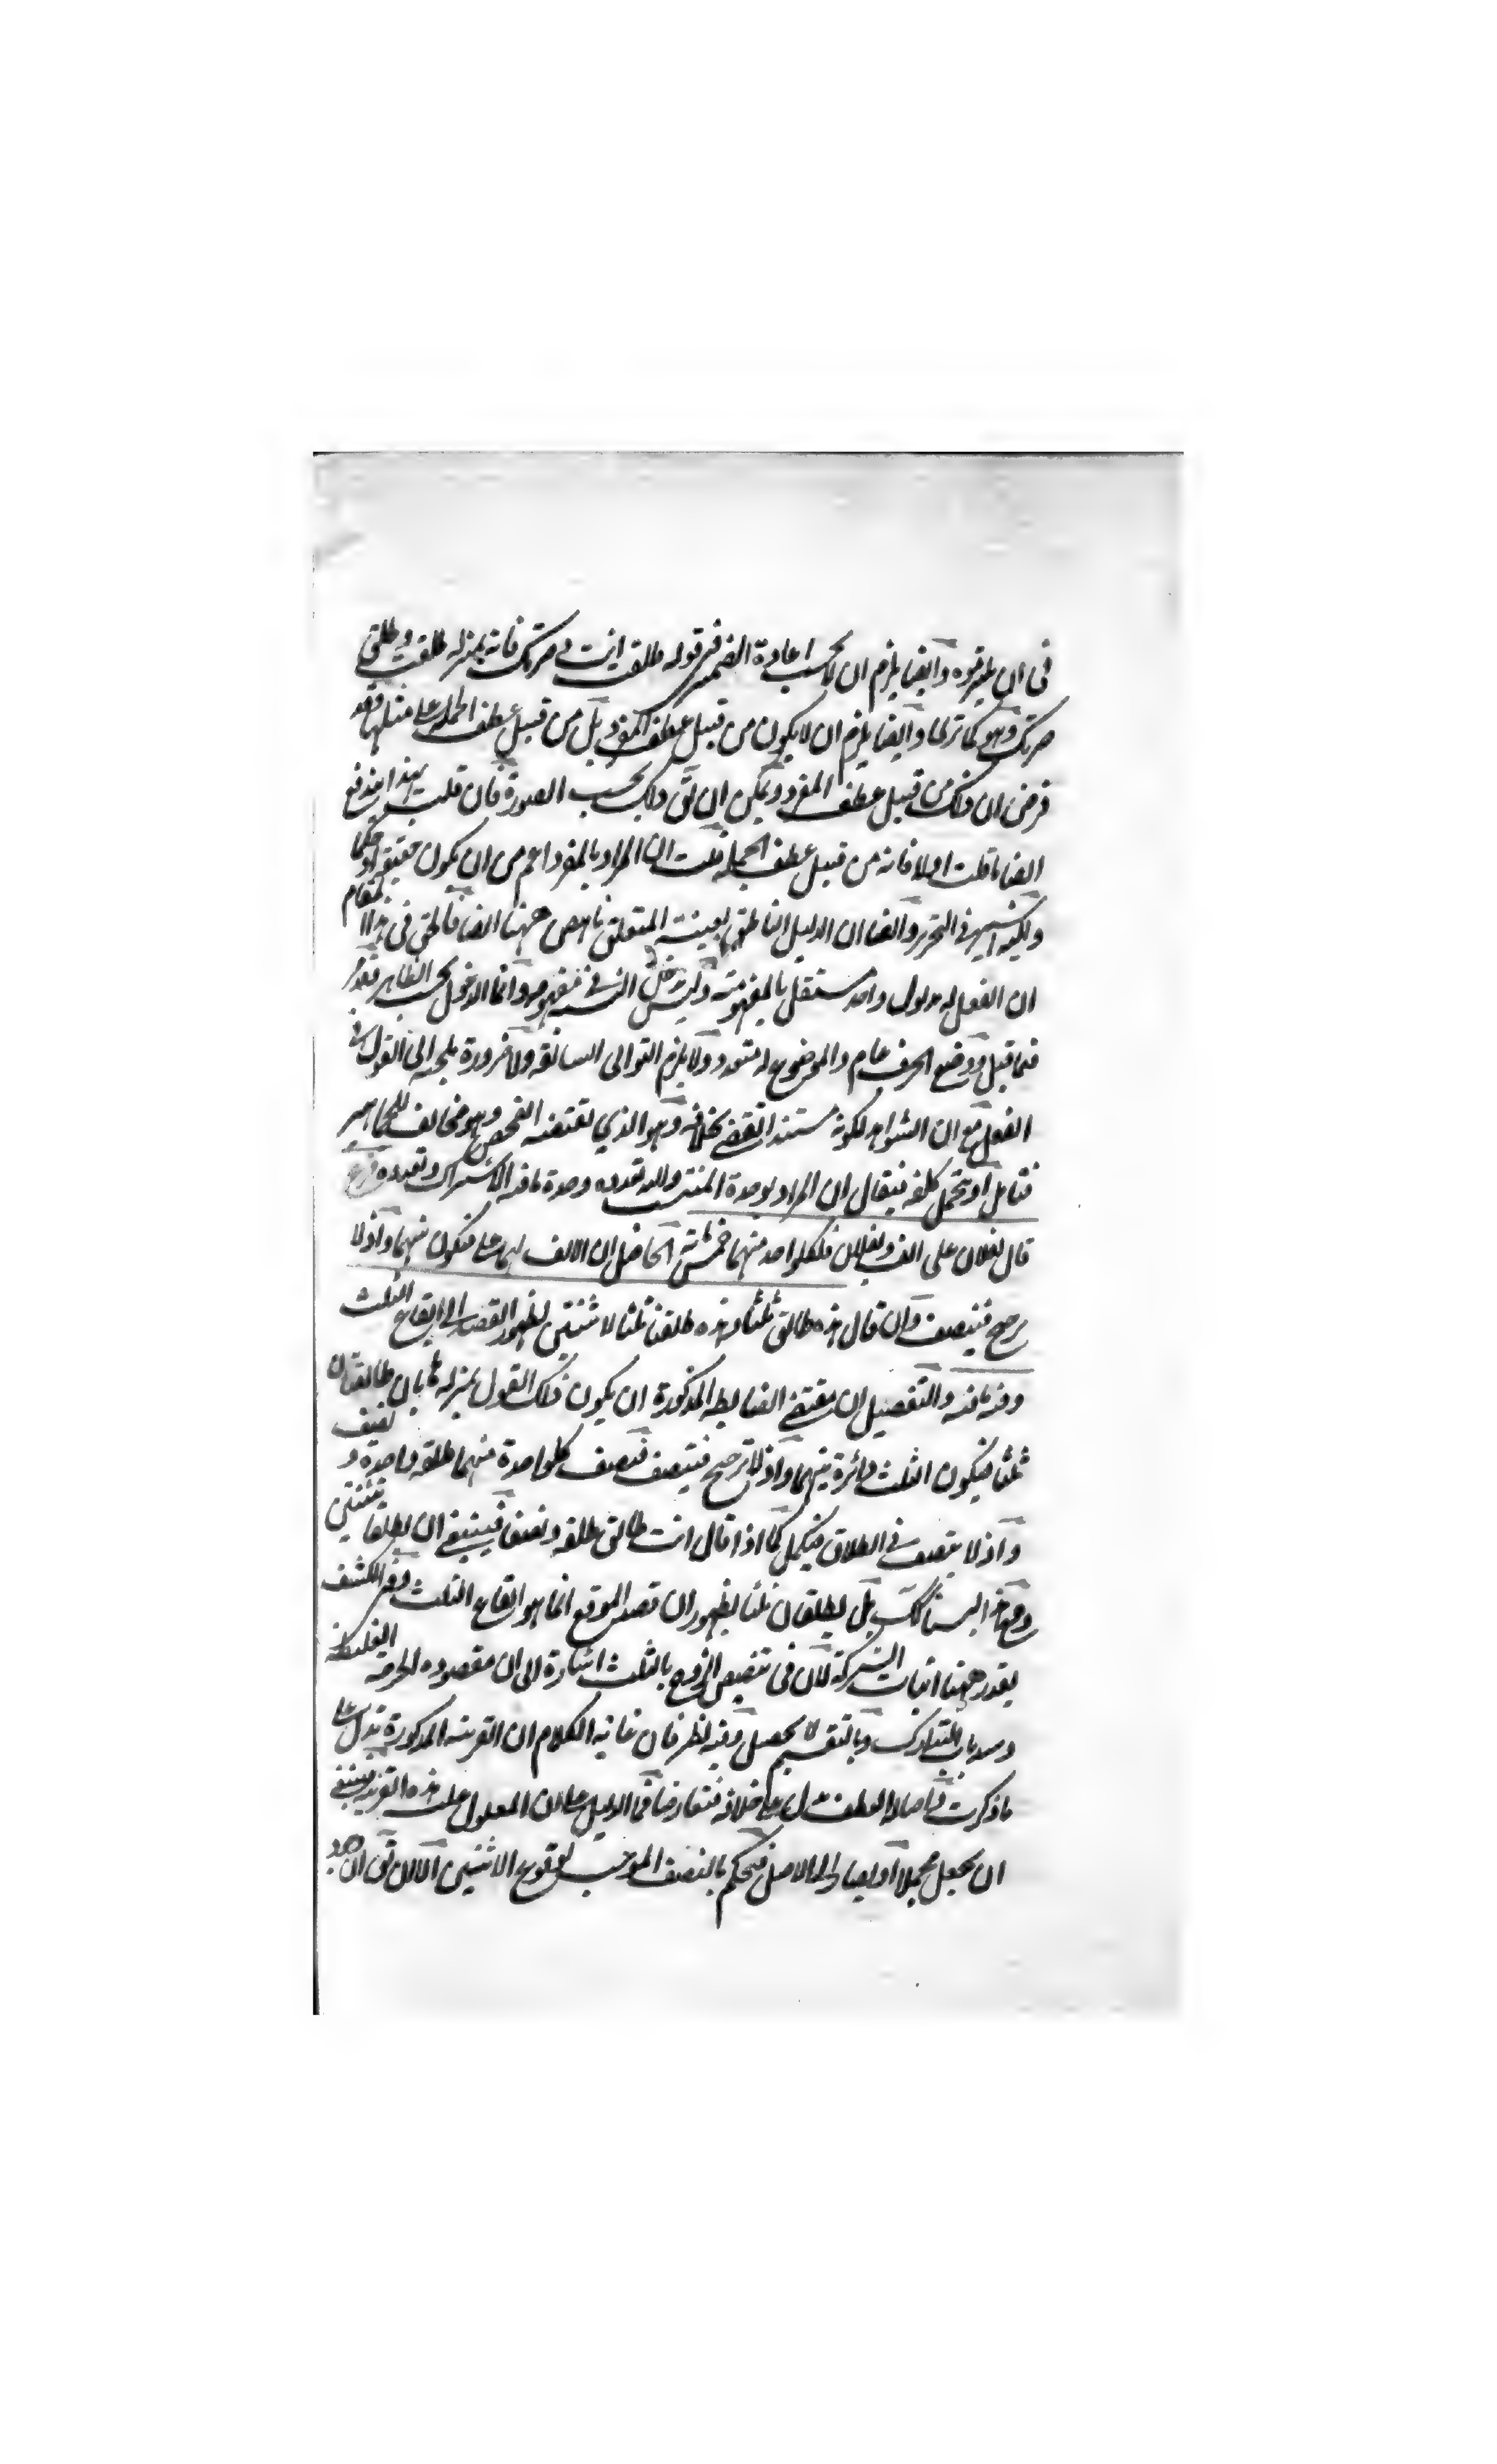 فى ان يلتزموه وايضا يلزم ان لا يحسب اعادة الضمير فى قوله طلقت انت وضرتك فانه بمنزلة طلقت وطلقت
ضرتك وهو كما ترى وايضا يلزم ان لا يكون من قبيل عطف المفرد بل من قبيل عطف الجملة على مثلها وقد
فرض ان ذلك من قبيل عطف المفرد ويمكن ان يق ذلك بحسب الصورة فان قلت بهذا يندفع
ايضا ما قلت اولا فانه من قبيل عطف الجملة قلت ان المراد بالمفرد اعم من ان يكون حقيقة او حكما
واليه اشير فى التحرير وايضا ان الدليل الناطق بعينية المتعلق ناهض ههنا ايضا فالحق فى هذا المقام
ان الفعل له مدلول واحد مستقل بالمفهومية وليست داخل النسبة فى مفهومه وانما الدخول بحسب الظاهر فقد
فيما قبل ووضع الحرف عام والموضوع له متعدد ولا يلزم التوالى السابقة ولا ضرورة ملجئة الى القول فى
الفعل مع ان الشواهد لكونه مستندا تقضى بخلافه وهو الذي يقتضيه الفحص وهو مخالف للجماهير
فتامل او يتحمل كلفة فيقال ان المراد بوحدة المنتسب والد تعدده وحدة ما فيه الاشتراك وتعدده فرع
قال لفلان على الف ولفلان فلكل واحد منهما خمسمائة الحاصل ان الالف لهما على فيكون بينهما واذ لا
مرجح فينصف وان قال هذه طالق ثلثا وهذه طلقتا ثلثا لا ثنتين لظهور القصد الى ايقاع الثلث
وفيه ما فيه والتفصيل ان مقتضى الضابطة المذكورة ان يكون ذلك القول بمنزلة هاتان طالقتان
ثلثا فيكون الثلث دائرة بينهما واذ لا ترجيح فينصف فنصيب كل واحدة منهما طلقة واحدة ونصف
واذ لا ينصف فى الطلاق فيكمل كما اذا قال انت طالق طلقة ونصفا فينبغى ان يطلقا ثنتين
وجوابه ليس كذلك بل يطلقان ثلثا لظهور ان قصد الموقع انما هو ايقاع الثلث وفى الكشف
يقدر ههنا اثبات الشركة لان فى تنصيص الزوج بالثلث اشارة الى ان مقصوده الحرمة الغليظة
وسد باب التدارك وبالتقسيم لا يحصل وفيه نظر فان غاية الكلام ان القرينة المذكورة تدل على
ما ذكرت واصالة العطف تدل على خلافه فتعارضا فى الدليل على ان المعلول علت هذه القرينة فينبغى
ان يجعل مجملا او يصار الى الاصل فيحكم بالنصف الموجب لوقوع الاثنين الا ان يق ان